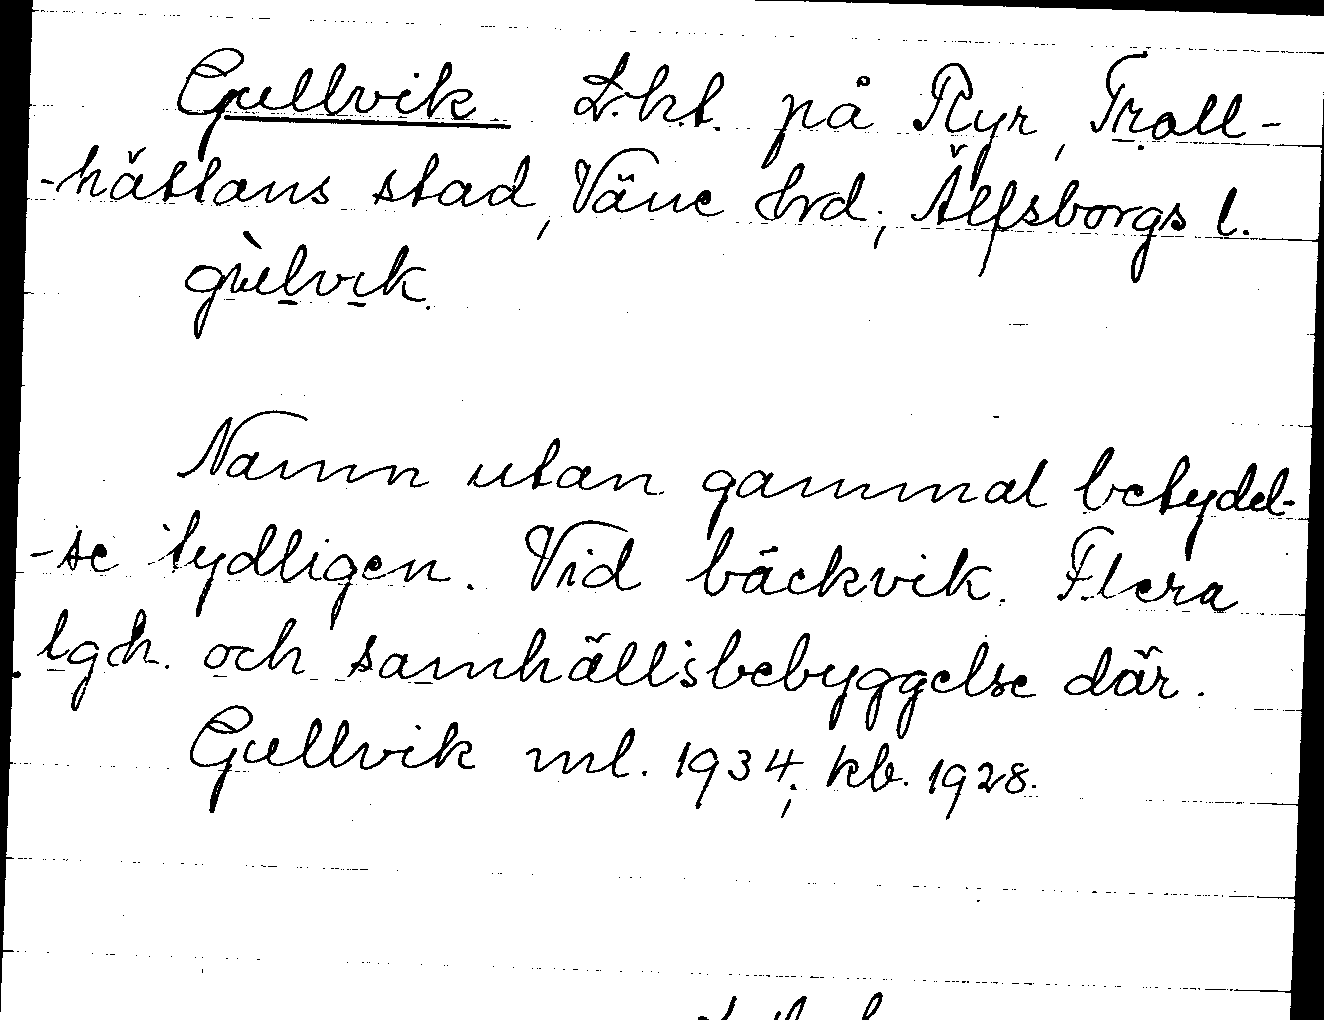 Gullvik L.h.t. på Ryr, Troll-
-hättans stad, Väne hrd; Älfsborgs l.
gùlvik.
Namn utan gammal betydel-
-se tydligen. Vid bäckvik. Flera
lgh. och samhällsbebyggelse där.
Gullvik ml. 1934; kb. 1928.